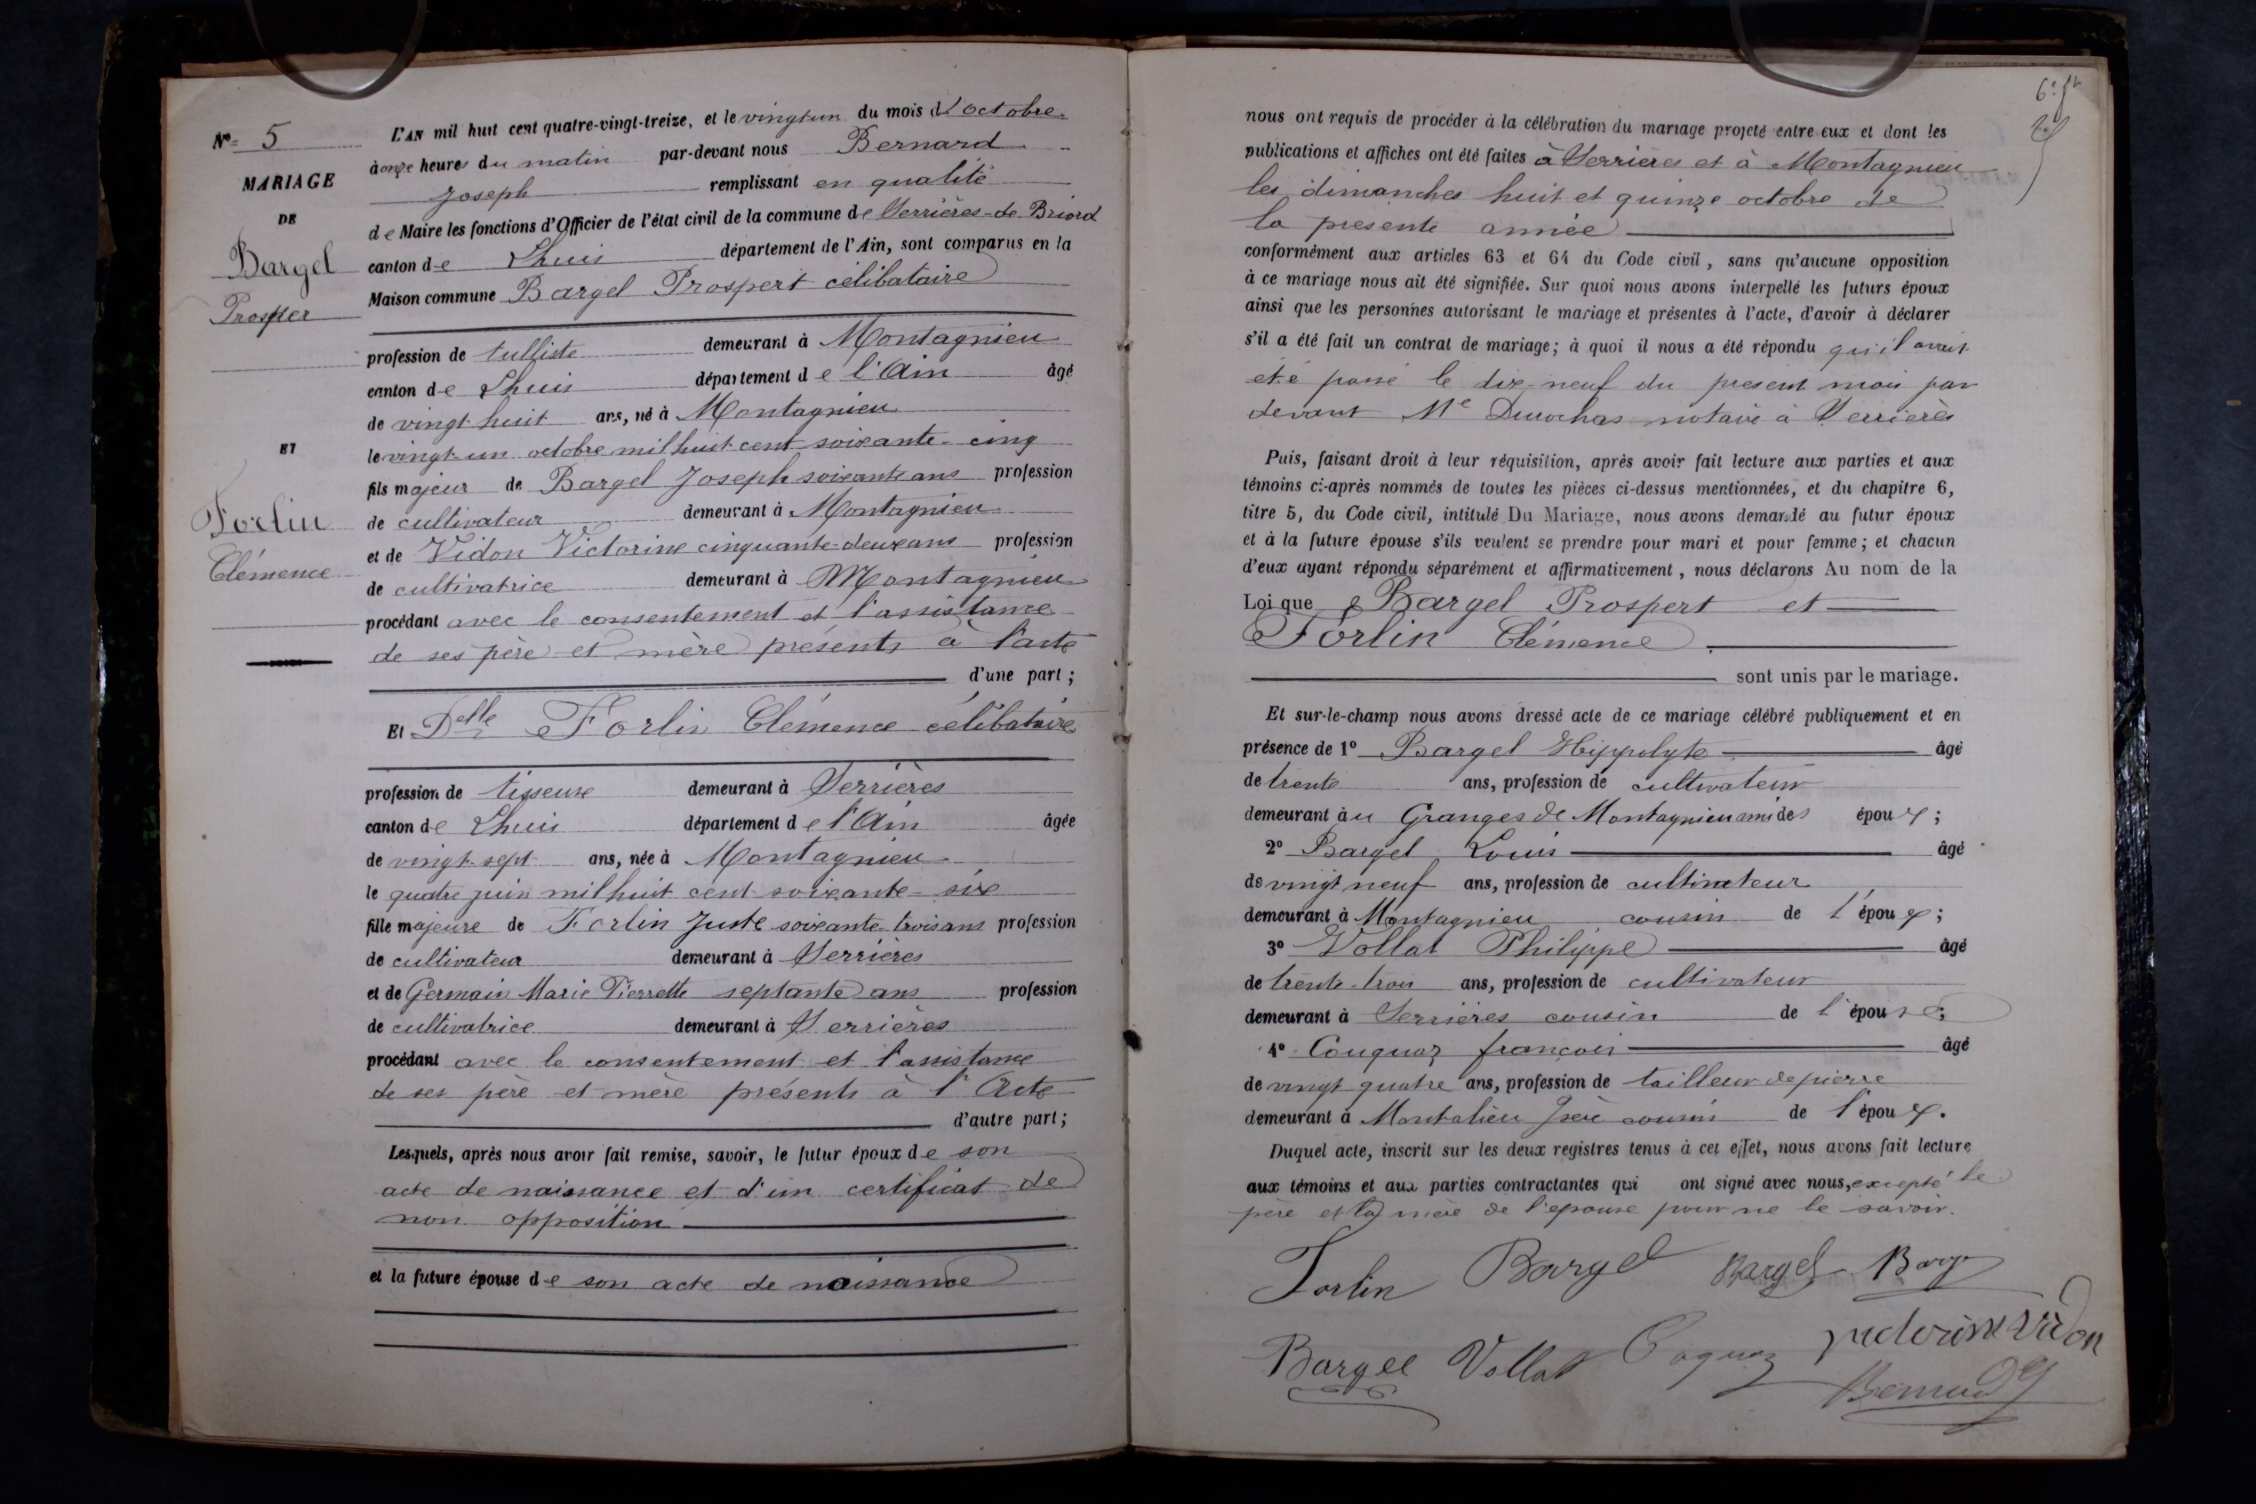 N° 5
MARIAGE
DE
Bargel
Prosper
ET
Forlin
Clémence
L'AN mil huit cent quatre-vingt-treize, et le vingt un du mois d'octobre
à onze heures du matin par-devant nous Bernard
Joseph remplissant en qualité
de Maire les fonctions d'Officier de l'état civil de la commune de Serrières-de Briord
canton de Lhuis département de l'Ain, sont comparus en la
Maison commune Bargel Prospert célibataire
profession de tulliste demeurant à Montagnieu
canton de Lhuis département de l'Ain âgé
de vingt huit ans, né à Montagnieu
le vingt-un octobre mil huit cent soixante-cinq
fils majeur de Bargel Joseph soixante ans profession
de cultivateur demeurant à Montagnieu
et de Vidon Victorine cinquante-deux ans profession
de cultivatrice demeurant à Montagnieu
procédant avec le consentement et l'assistance
de ses père et mère présents à l'acte
d'une part ;
Et Delle Forlin Clémence célibataire
profession de tisseuse demeurant à Serrières
canton de Lhuis département de l'Ain âgée
de vingt-sept ans, née à Montagnieu
le quatre juin mil huit cent soixante-six
fille majeure de Forlin Juste soixante trois ans profession
de cultivateur demeurant à Serrières
et de Germain Marie Pierrette septante ans profession
de cultivatrice demeurant à Serrières
procédant avec le consentement et l'assistance
de ses père et mère présents à l'Acte
d'autre part ;
Lesquels, après nous avoir fait remise, savoir, le futur époux de son
acte de naissance et d'un certificat de
non opposition
et la future épouse de son acte de naissance
nous ont requis de procéder à la célébration du mariage projeté entre eux et dont les
publications et affiches ont été faites à Serrières et à Montagnieu
les dimanches huit et quinze octobre de
la presente année
conformément aux articles 63 et 64 du Code civil, sans qu'aucune opposition
à ce mariage nous ait été signifiée. Sur quoi nous avons interpellé les futurs époux
ainsi que les personnes autorisant le mariage et présentes à l'acte, d'avoir à déclarer
s'il a été fait un contrat de mariage; à quoi il nous a été répondu qu'il avait
été passé le dix-neuf du present mois par
devant Me Durochas notaire à Serrières
Puis, faisant droit à leur réquisition, après avoir fait lecture aux parties et aux
témoins ci-après nommés de toutes les pièces ci-dessus mentionnées, et du chapitre 6,
titre 5, du Code civil, intitulé Du Mariage, nous avons demandé au futur époux
et à la future épouse s'ils veulent se prendre pour mari et pour femme; et chacun
d'eux ayant répondu séparément et affirmativement, nous déclarons Au nom de la
Loi que Bargel Prospert et
Forlin Clémence
sont unis par le mariage.
Et sur-le-champ nous avons dressé acte de ce mariage célébré publiquement et en
présence de 1° Bargel Hippolyte âgé
de trente ans, profession de cultivateur
demeurant au Granges de Montagnieu ami des époux ;
2° Bargel Louis âgé
de vingt neuf ans, profession de cultivateur
demeurant à Montagnieu cousin de l'époux ;
3° Vollat Philippe âgé
de trente-trois ans, profession de cultivateur
demeurant à Serrières cousin de l'épouse ;
4° Couquaz françois âgé
de vingt quatre ans, profession de tailleur de pierre
demeurant à Montalieu Isère cousin de l'époux.
Duquel acte, inscrit sur les deux registres tenus à cet effet, nous avons fait lecture
aux témoins et aux parties contractantes qui ont signé avec nous, excepté le
père et la mère de l'épouse pour ne le savoir.
Forlin Bargel Bargel Barge
Bargel Vollat Coquaz victorine vidon
Bernard